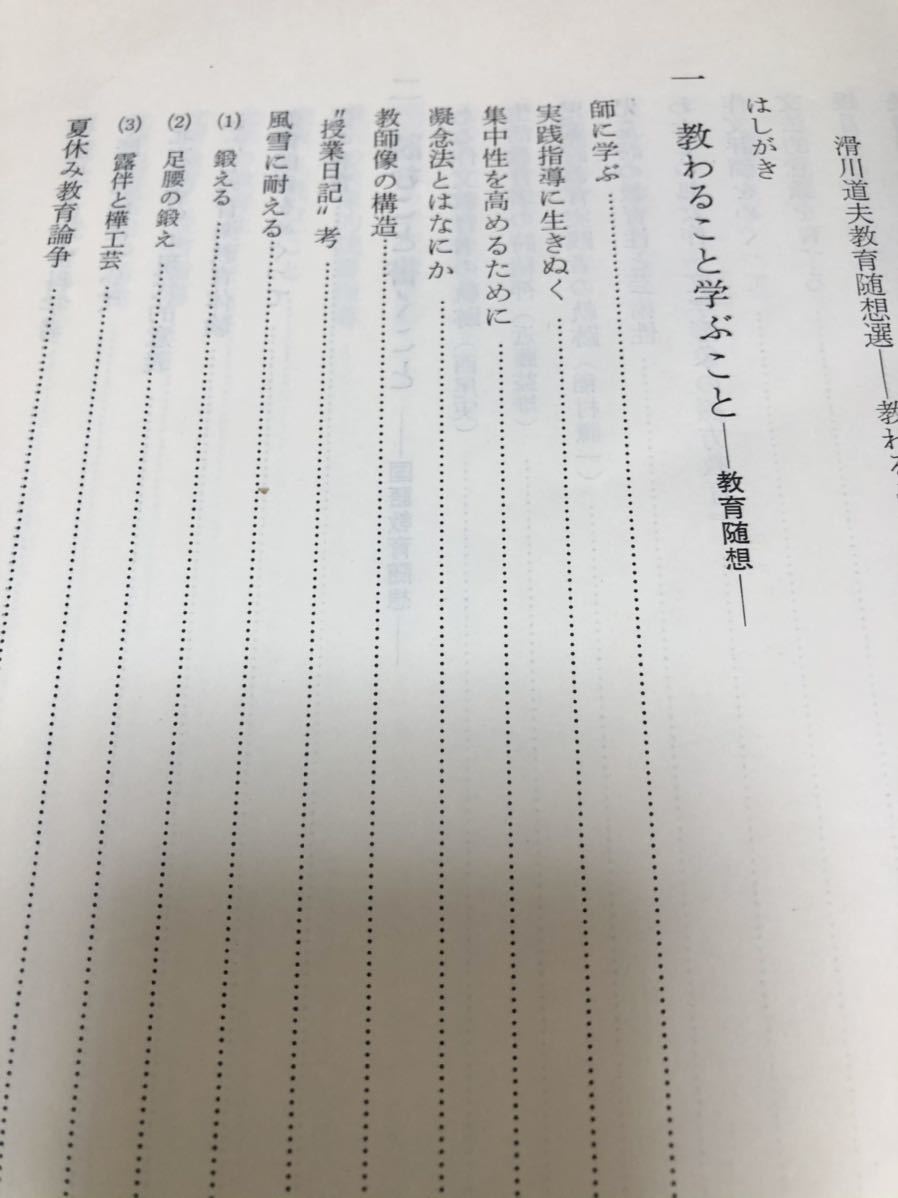 滑川道夫教育随想選――教わる
はしがき
一 教わること学ぶこと――教育随想――
師に学ぶ
実践指導に生きぬく
集中性を高めるために
凝念法とはなにか
教師像の構造
〝授業日記〟考
風雪に耐える
(1) 鍛える
(2) 足腰の鍛え
(3) 露伴と樺工芸
夏休み教育論争